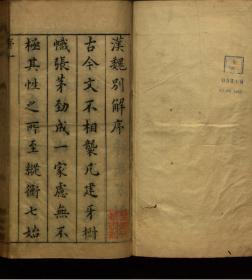 漢魏別解序
古今文不相襲凡建牙樹
幟張茅勁成一家應無不
極其性之所至縱衡七始
序一